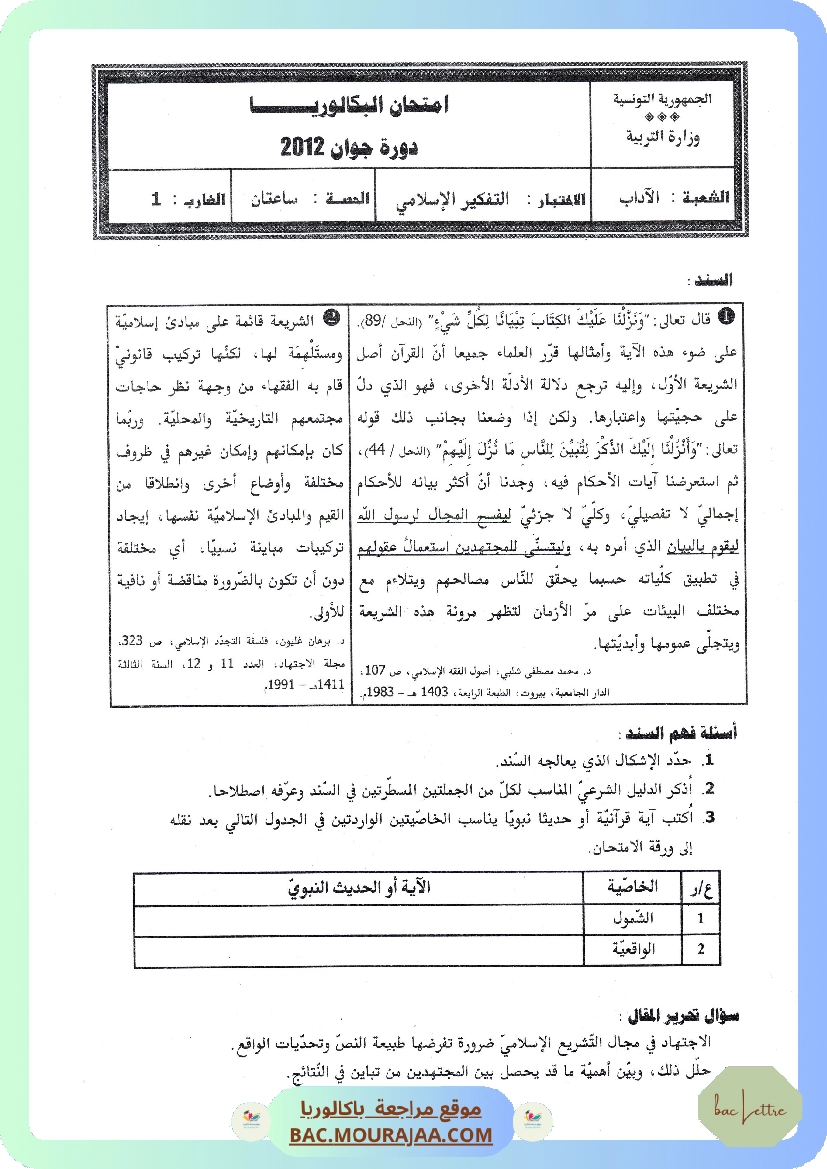 الجمهورية التونسية
وزارة التربية
امتحان البكالوريـــــا
دورة جوان 2012
الشعبة : الآداب
الاختبار : التفكير الإسلامي
الحصة : ساعتان
الضارب : 1
السند :
❶ قال تعالى: "وَنَزَّلْنَا عَلَيْكَ الكِتَابَ تِبْيَانًا لِكُلِّ شَيْءٍ" (النحل /89).
على ضوء هذه الآية وأمثالها قرّر العلماء جميعا أنّ القرآن أصل
الشريعة الأوّل، وإليه ترجع دلالة الأدلّة الأخرى، فهو الذي دلّ
على حجيّتها واعتبارها. ولكن إذا وضعنا بجانب ذلك قوله
تعالى: "وَأَنْزَلْنَا إِلَيْكَ الذِّكْرَ لِتُبَيِّنَ لِلنَّاسِ مَا نُزِّلَ إِلَيْهِمْ" (النحل / 44)،
ثم استعرضنا آيات الأحكام فيه، وجدنا أنّ أكثر بيانه للأحكام
إجماليّ لا تفصيليّ، وكلّيّ لا جزئيّ ليفسح المجال لرسول الله
ليقوم بالبيان الذي أمره به، وليتسنّى للمجتهدين استعمالُ عقولهم
في تطبيق كلّياته حسبما يحقّق للنّاس مصالحهم ويتلاءم مع
مختلف البيئات على مرّ الأزمان لتظهر مرونة هذه الشريعة
ويتجلّى عمومها وأبديّتها.
د. محمد مصطفى شلبي: أصول الفقه الإسلامي، ص 107،
الدار الجامعية، بيروت: الطبعة الرابعة، 1403 هـ – 1983م.
❷ الشريعة قائمة على مبادئ إسلاميّة
ومستَلْهِمَة لها، لكنّها تركيب قانونيّ
قام به الفقهاء من وجهة نظر حاجات
مجتمعهم التاريخيّة والمحليّة. وربّما
كان بإمكانهم وإمكان غيرهم في ظروف
مختلفة وأوضاع أخرى وانطلاقا من
القيم والمبادئ الإسلاميّة نفسها، إيجاد
تركيبات مباينة نسبيّا، أي مختلفة
دون أن تكون بالضّرورة مناقضة أو نافية
للأولى.
د. برهان غليون، فلسفة التجدّد الإسلامي، ص 323،
مجلة الاجتهاد، العدد 11 و 12، السنة الثالثة
1411هـ – 1991م.
أسئلة فهم السند :
1. حدّد الإشكال الذي يعالجه السّند.
2. أُذكر الدليل الشرعيّ المناسب لكلّ من الجملتين المسطّرتين في السّند وعرّفه اصطلاحا.
3. أُكتب آية قرآنيّة أو حديثا نبويّا يناسب الخاصّيتين الواردتين في الجدول التالي بعد نقله
إلى ورقة الامتحان.
ع/ر الخاصّية الآية أو الحديث النبويّ
1 الشّمول
2 الواقعيّة
سؤال تحرير المقال :
الاجتهاد في مجال التّشريع الإسلاميّ ضرورة تفرضها طبيعة النصّ وتحدّيات الواقع.
حلّل ذلك، وبيّن أهميّة ما قد يحصل بين المجتهدين من تباين في النّتائج.
موقع مراجعة باكالوريا
BAC.MOURAJAA.COM
bac Lettre